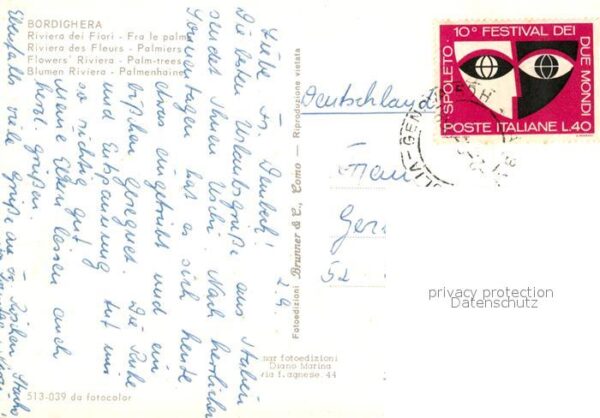 BORDIGHERA
Riviera dei Fiori - Fra le palme
Riviera des Fleurs - Palmiers
Flowers' Riviera - Palm-trees
Blumen Riviera - Palmenhaine
2. 9.
Liebe Fr.
Die besten Urlaubsgrüße aus Italien
sendet Ihnen Uschi. Nach herrlichen
Sonnentagen hat es sich heute
etwas eingetrübt und ein
bißchen geregnet. Die Ruhe
und Entspannung tut mir
so richtig gut.
Meine Eltern lassen auch
herzl. grüßen.
Ebenfalls viele Grüße an Fr.
Fotoedizioni Brunner & C., Como - Riproduzione vietata
Deutschland
Frau
Ger
52
10° FESTIVAL DEI
DUE MONDI
SPOLETO
POSTE ITALIANE L.40
privacy protection
Datenschutz
fotoedizioni
Diano Marina
ria f.agnese. 44
513-039 da fotocolor